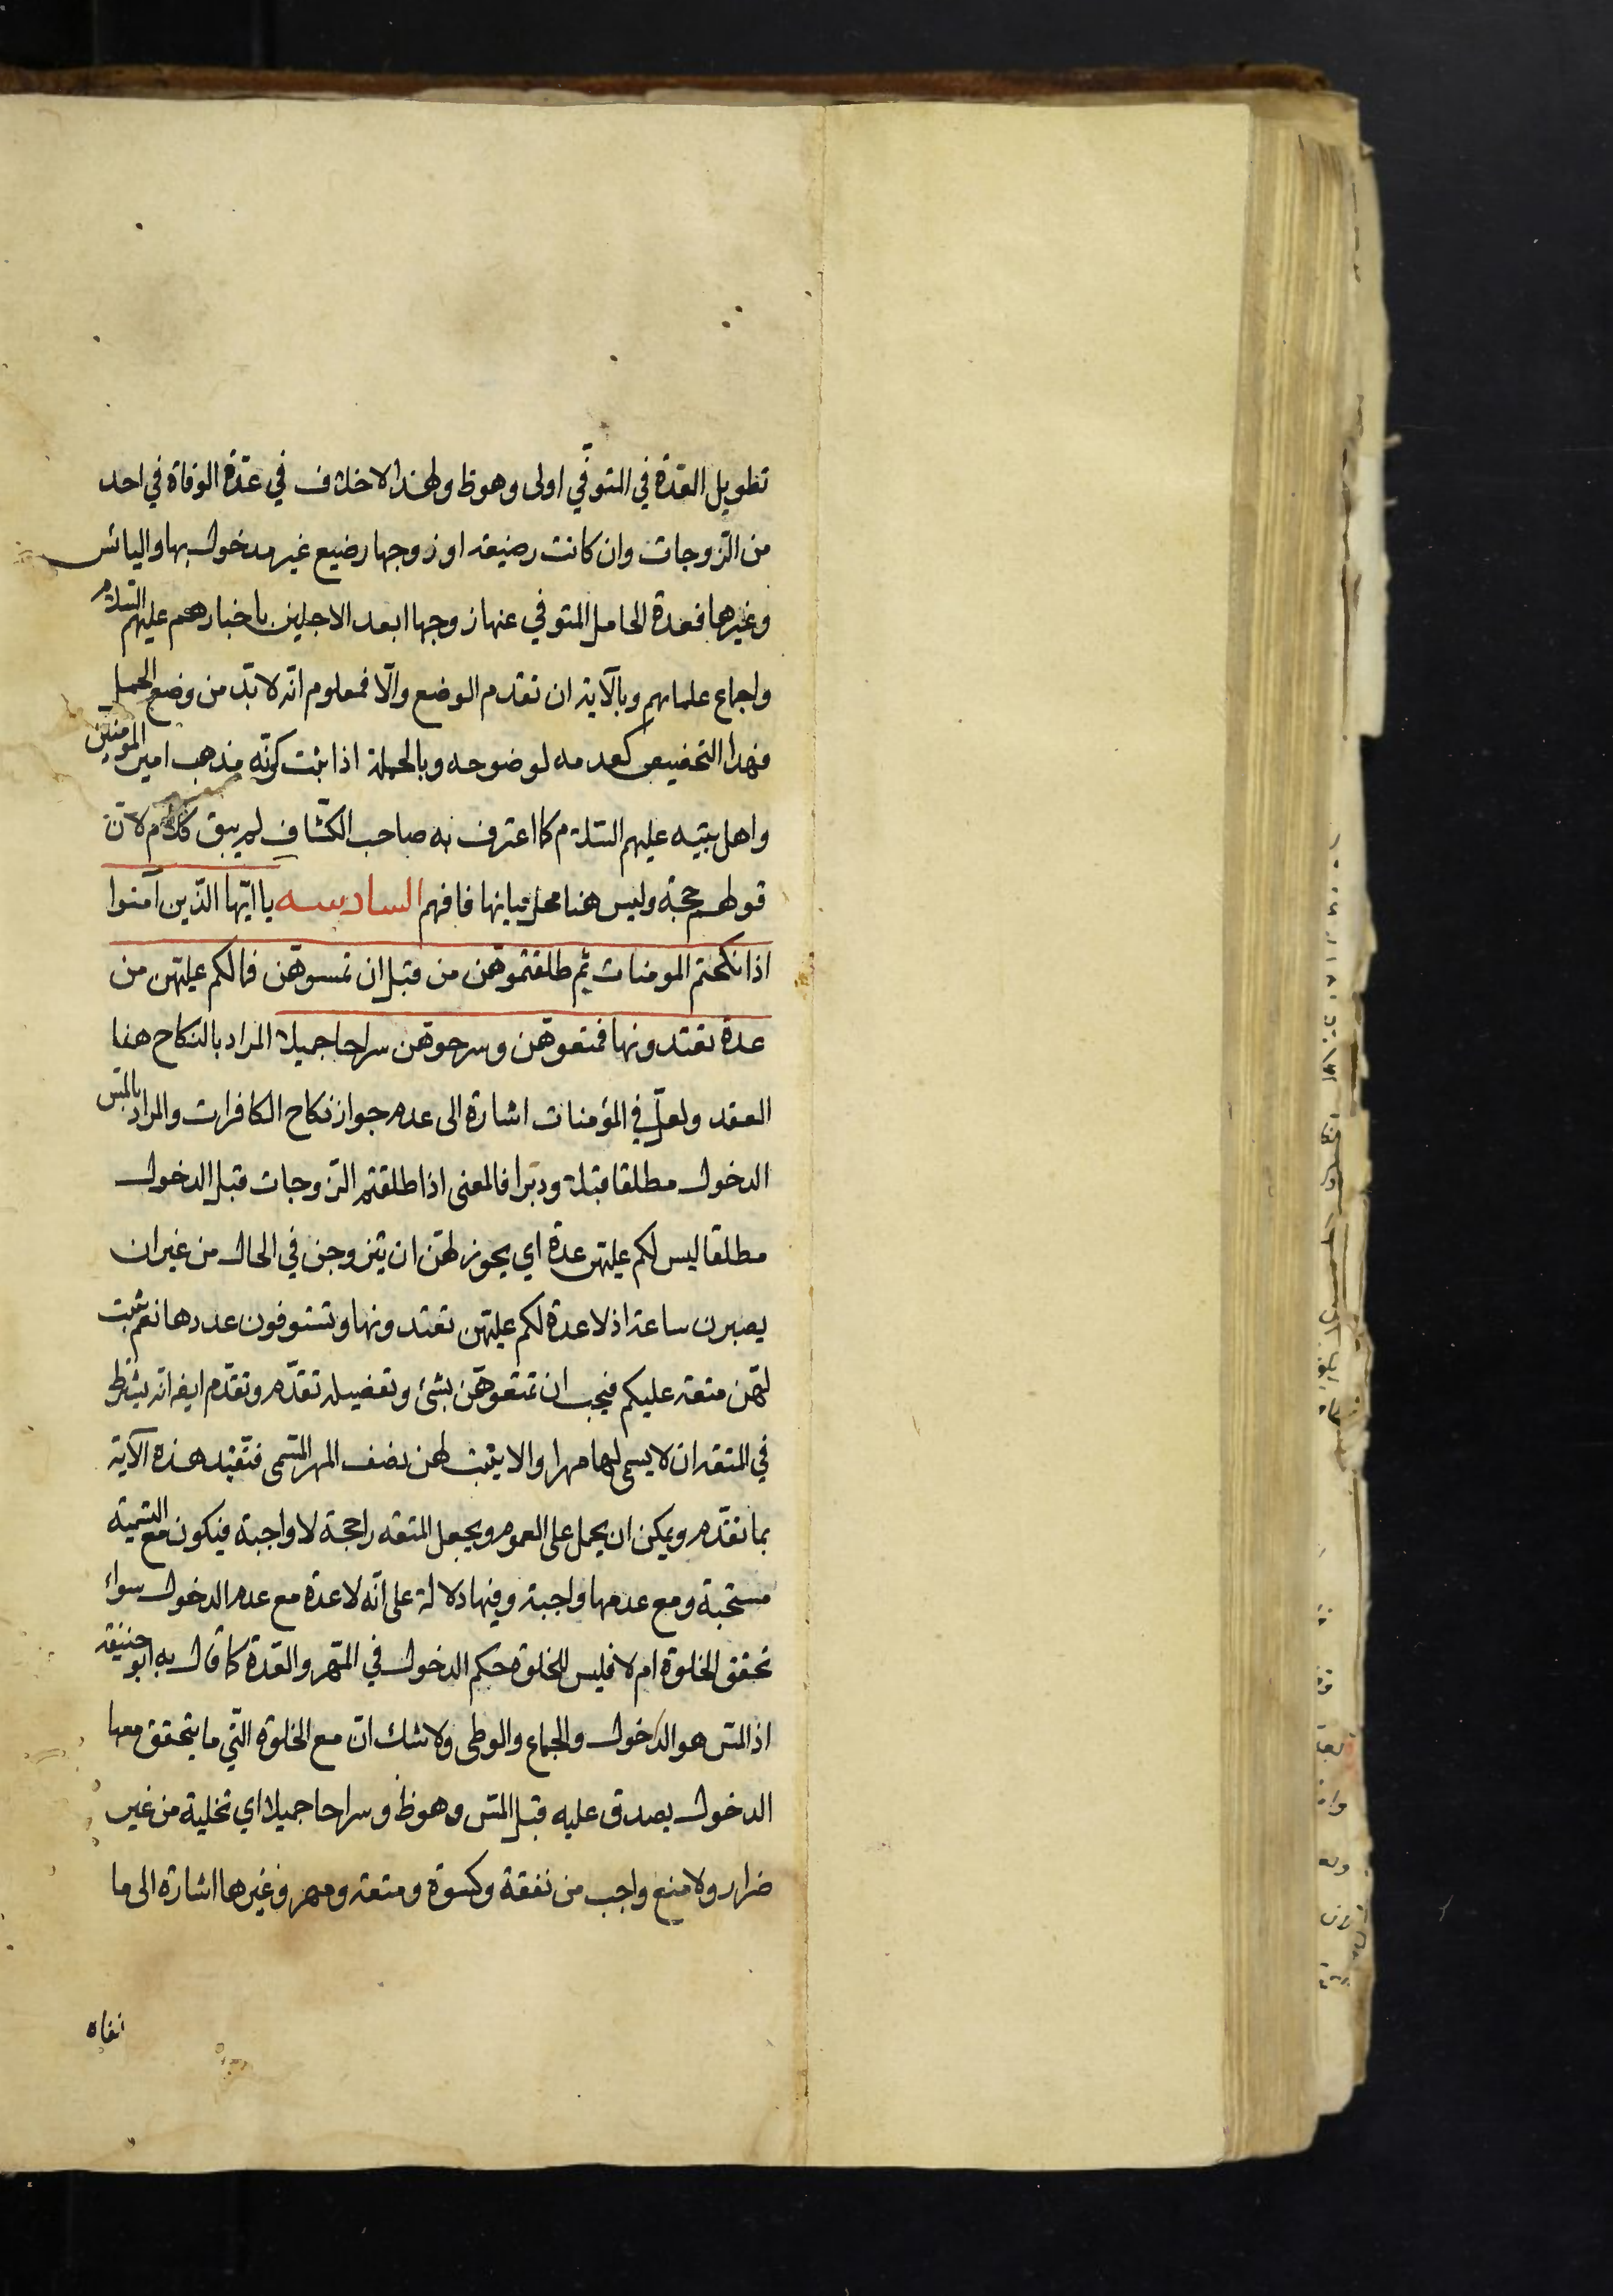 تطويل العدّة في المتوفّي اولى وهوظ ولهذا لاخلاف في عدّة الوفاة في احد
من الزّوجات وان كانت رضيعه او زوجها رضيع غير مدخول بها واليائس
وغيرها فعدة الحامل المتوفي عنها زوجها ابعد الاجلين باخبارهم عليهم السّلام
واجماع علمائهم وبالآية ان تقدم الوضع والّا فمعلوم انّه لا بدّ من وضع الحمل
فهذا التخصيص كعدمه لوضوحه وبالجملة اذا ثبت كونه مذهب امير المومنين
واهل بيته عليهم السّلام كما اعترف به صاحب الكشّاف لم يبق كلام لانّ
قولهم حجة وليس هنا محل بيانها فافهم السادسه يا ايّها الّذين آمنوا
اذا نكحتم المومنات ثم طلقتموهن من قبل ان تمسوهن فمالكم عليهن من
عدة تعتدونها فمتعوهن وسرحوهن سراحا جميلا المراد بالنكاح هنا
العقد ولعلّ في المؤمنات اشارة الى عدم جواز نكاح الكافرات والمراد بالمسّ
الدخول مطلقا قبلا ودبرا فالمعنى اذا طلقتم الزّوجات قبل الدخول
مطلقا ليس لكم عليهن عدة اي يجوز لهن ان يتزوجن في الحال من غير ان
يصبرن ساعة اذ لا عدة لكم عليهن تعتدونها وتستوفون عددها نعم ثبت
لهّن متعه عليكم فيجب ان تمتعوهّن بشئ وتفصيله تقدّم وتقدّم ايضا انه يشترط
في المتعة ان لا يسمى لها مهرا والا يثبت لهن نصف المهر المسّمى فتقيد هذه الآية
بما تقدّم ويمكن ان يحمل على العموم ويجعل المتعه راجحة لا واجبة فيكون مع التسمية
مستحبة ومع عدمها واجبة وفيها دلالة على انّه لا عدة مع عدم الدخول سواء
تحقق الخلوة ام لا فليس للخلوة حكم الدخول في المهر والعدّة كما قال به ابو حنيفه
اذ المسّ هو الدّخول والجماع والوطى ولا شك انّ مع الخلوة الّتي ما يتحقق معها
الدخول يصدق عليه قبل المسّ وهوظ وسراحا جميلا اي تخلية من غير
ضرار ولا منع واجب من نفقة وكسوة ومتعه ومهر وغيرها اشارة الى ما